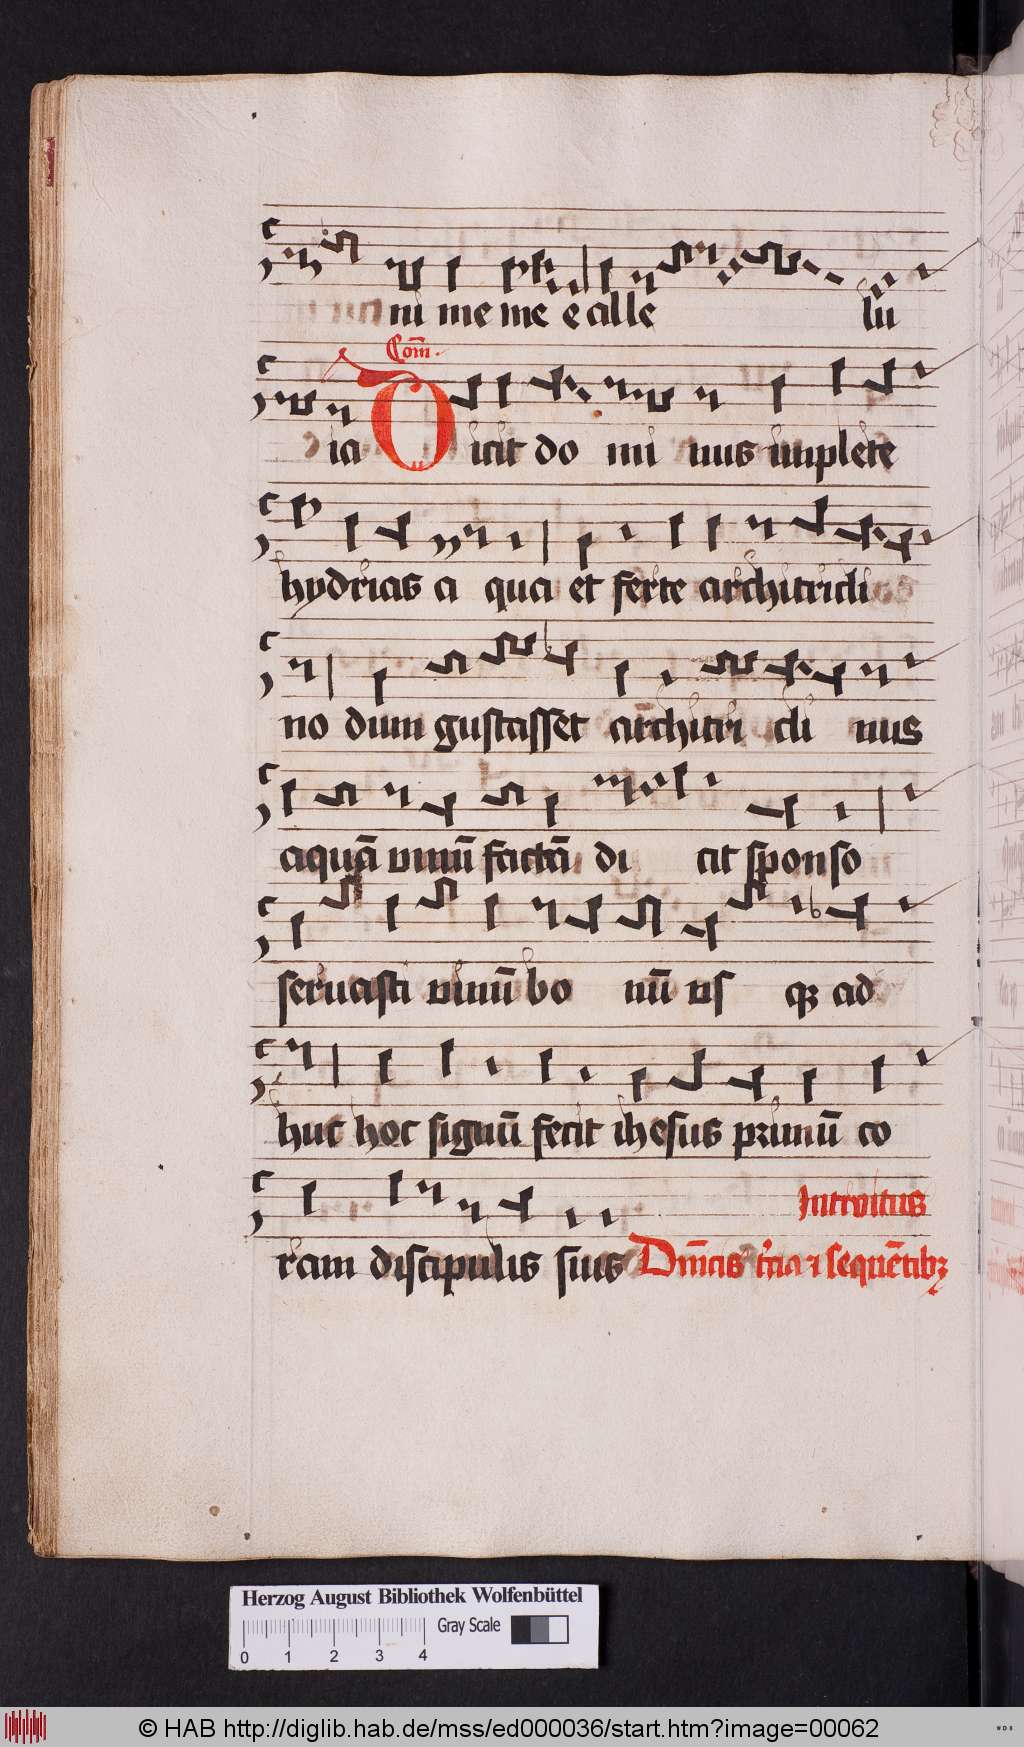 ni me me e alle lu
Com̄
ia Dicit do mi nus implete
hydrias a qua et ferte architricli
no dum gustasset architri cli nus
aquā vinū factā di cit sponso
seruasti vinū bo nū vsqꝫ ad
huc hoc signū fecit ihesus primū co
Introitus
ram discipulis suis Dn̄icis t̄cia ⁊ sequētibꝫ
Herzog August Bibliothek Wolfenbüttel
Gray Scale
0 1 2 3 4
© HAB http://diglib.hab.de/mss/ed000036/start.htm?image=00062